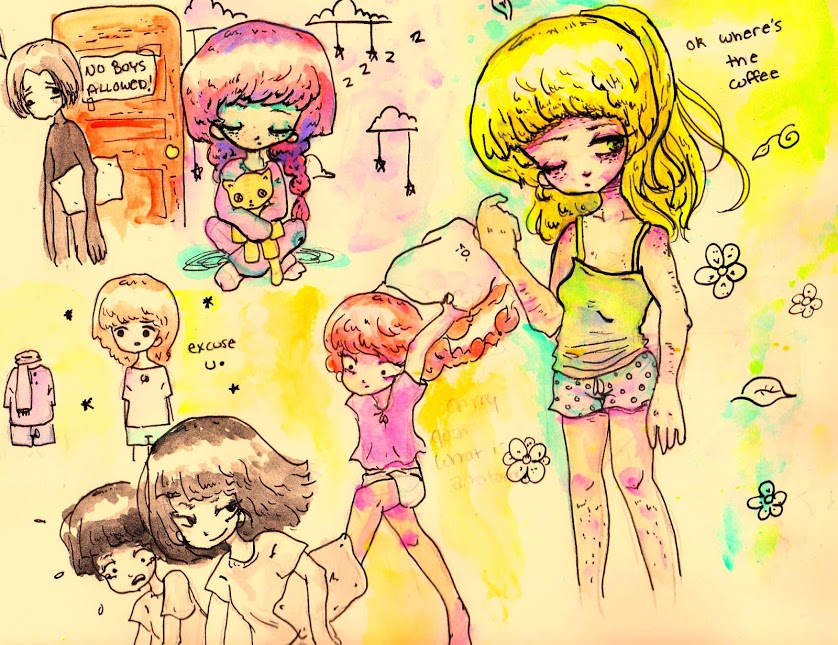 NO BOYS
ALLOWED!
z z z z
ok where's
the
coffee
excuse
u.